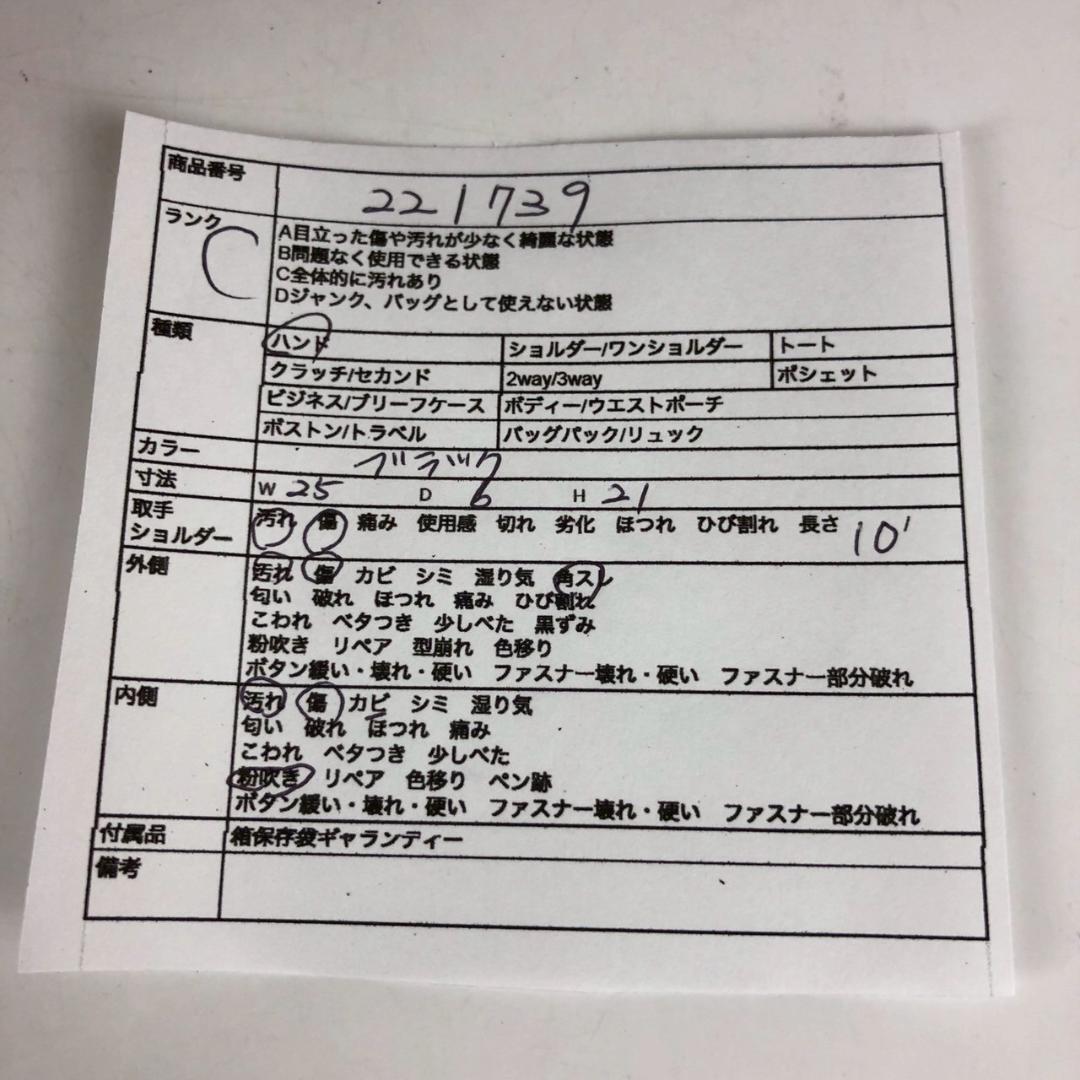 商品番号
221739
ランク
C
A目立った傷や汚れが少なく綺麗な状態
B問題なく使用できる状態
C全体的に汚れあり
Dジャンク、バッグとして使えない状態
種類
ハンド ショルダー/ワンショルダー トート
クラッチ/セカンド 2way/3way ポシェット
ビジネス/ブリーフケース ボディー/ウエストポーチ
ボストン/トラベル バッグパック/リュック
カラー ブラック
寸法 W 25 D 6 H 21
取手
ショルダー
汚れ 傷 痛み 使用感 切れ 劣化 ほつれ ひび割れ 長さ 10
外側
汚れ 傷 カビ シミ 湿り気 角スレ
匂い 破れ ほつれ 痛み ひび割れ
こわれ ベタつき 少しべた 黒ずみ
粉吹き リペア 型崩れ 色移り
ボタン緩い・壊れ・硬い ファスナー壊れ・硬い ファスナー部分破れ
内側
汚れ 傷 カビ シミ 湿り気
匂い 破れ ほつれ 痛み
こわれ ベタつき 少しべた
粉吹き リペア 色移り ペン跡
ボタン緩い・壊れ・硬い ファスナー壊れ・硬い ファスナー部分破れ
付属品 箱保存袋ギャランディー
備考